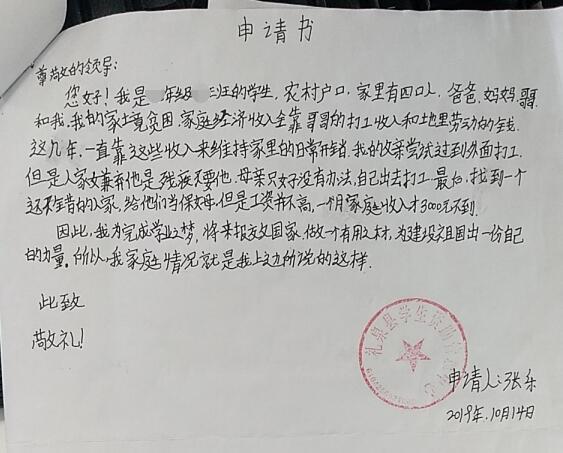 申请书
尊敬的领导:
您好!我是 年级 班的学生,农村户口,家里有四口人,爸爸、妈妈、哥哥
和我,我的家境贫困,家庭经济收入全靠哥哥的打工收入和地里劳动的钱.
这几年,一直靠这些收入来维持家里的日常开销,我的父亲尝试过到外面打工,
但是人家嫌弃他是残疾不要他.母亲只好没有办法,自己出去打工.最后,找到一个
还不错的人家,给他们当保姆,但是工资并不高,一个月家庭收入才3000元不到.
因此,我为完成学业之梦,将来报效国家.做一个有用之材,为建设祖国出一份自己
的力量.所以,我家庭情况就是我上边所说的这样.
此致
敬礼!
礼泉县学生资助
申请人:张乐
2019年.10月14日